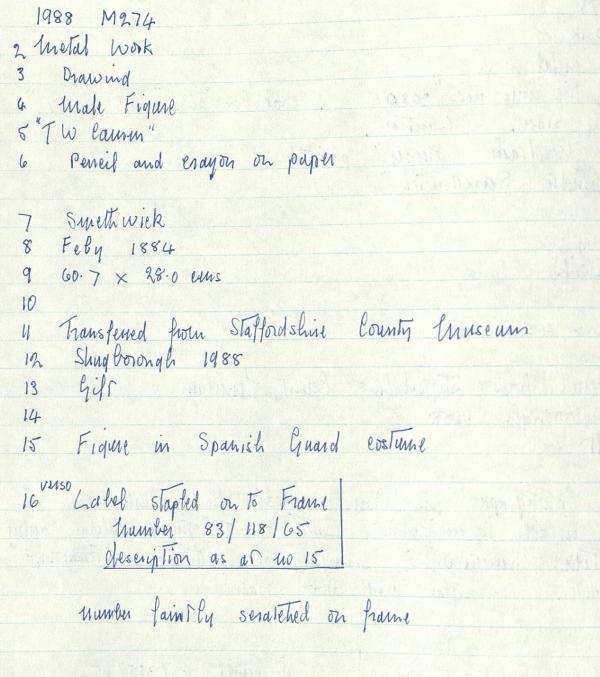 1988 M274
2 Metal Work
3 Drawing
4 Male Figure
5 "T W Causer"
6 Pencil and crayon on paper
7 Smethwick
8 Feby 1884
9 60.7 x 28.0 cms
10
11 Transferred from Staffordshire County Museum
12 Shugborough 1988
13 Gift
14
15 Figure in Spanish Guard costume
16 verso Label stapled on to Frame
Number 83/118/65
description as at no 15
number faintly scratched on frame